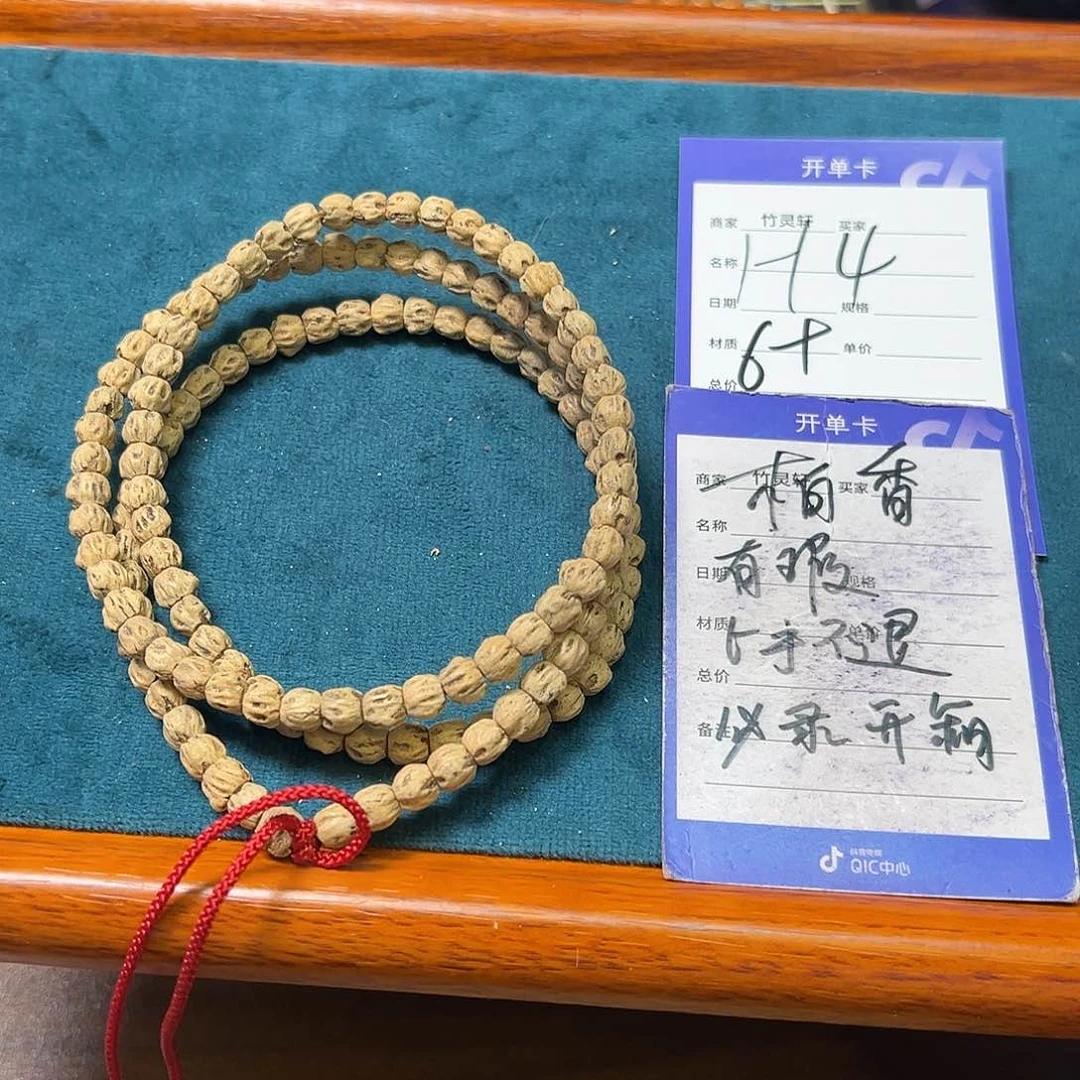 开单卡
商家 竹灵轩 买家
名称 H4
日期 规格
材质 6+ 单价
总价
开单卡
商家 竹灵轩 买家
柏香
名称
日期 规格
有瑕
材质 单价
卜手不退
总价
备注
必录开箱
抖音电商
QIC中心